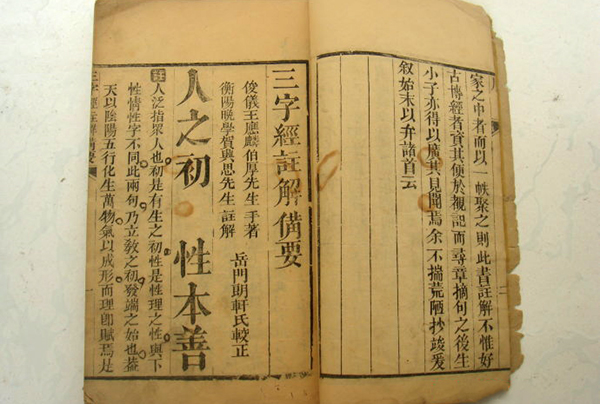 家之中者而以一帙聚之則此書註解不惟好
古博經者實其便於觀記而尋章摘句之後生
小子亦得以廣其見聞焉余不揣荒陋抄竣爰
叙始末以弁諸首云
三字經註解備要
俊儀王應麟伯厚先生手著
衡陽晚學賀興思先生註解
岳門朗軒氏較正
人之初 性本善
註人泛指眾人也初是有生之初性是性理之性與下
性情性字不同此兩句乃立敎之初發端之始也葢
天以陰陽五行化生萬物氣以成形而理卽賦焉是
三字經註解備要